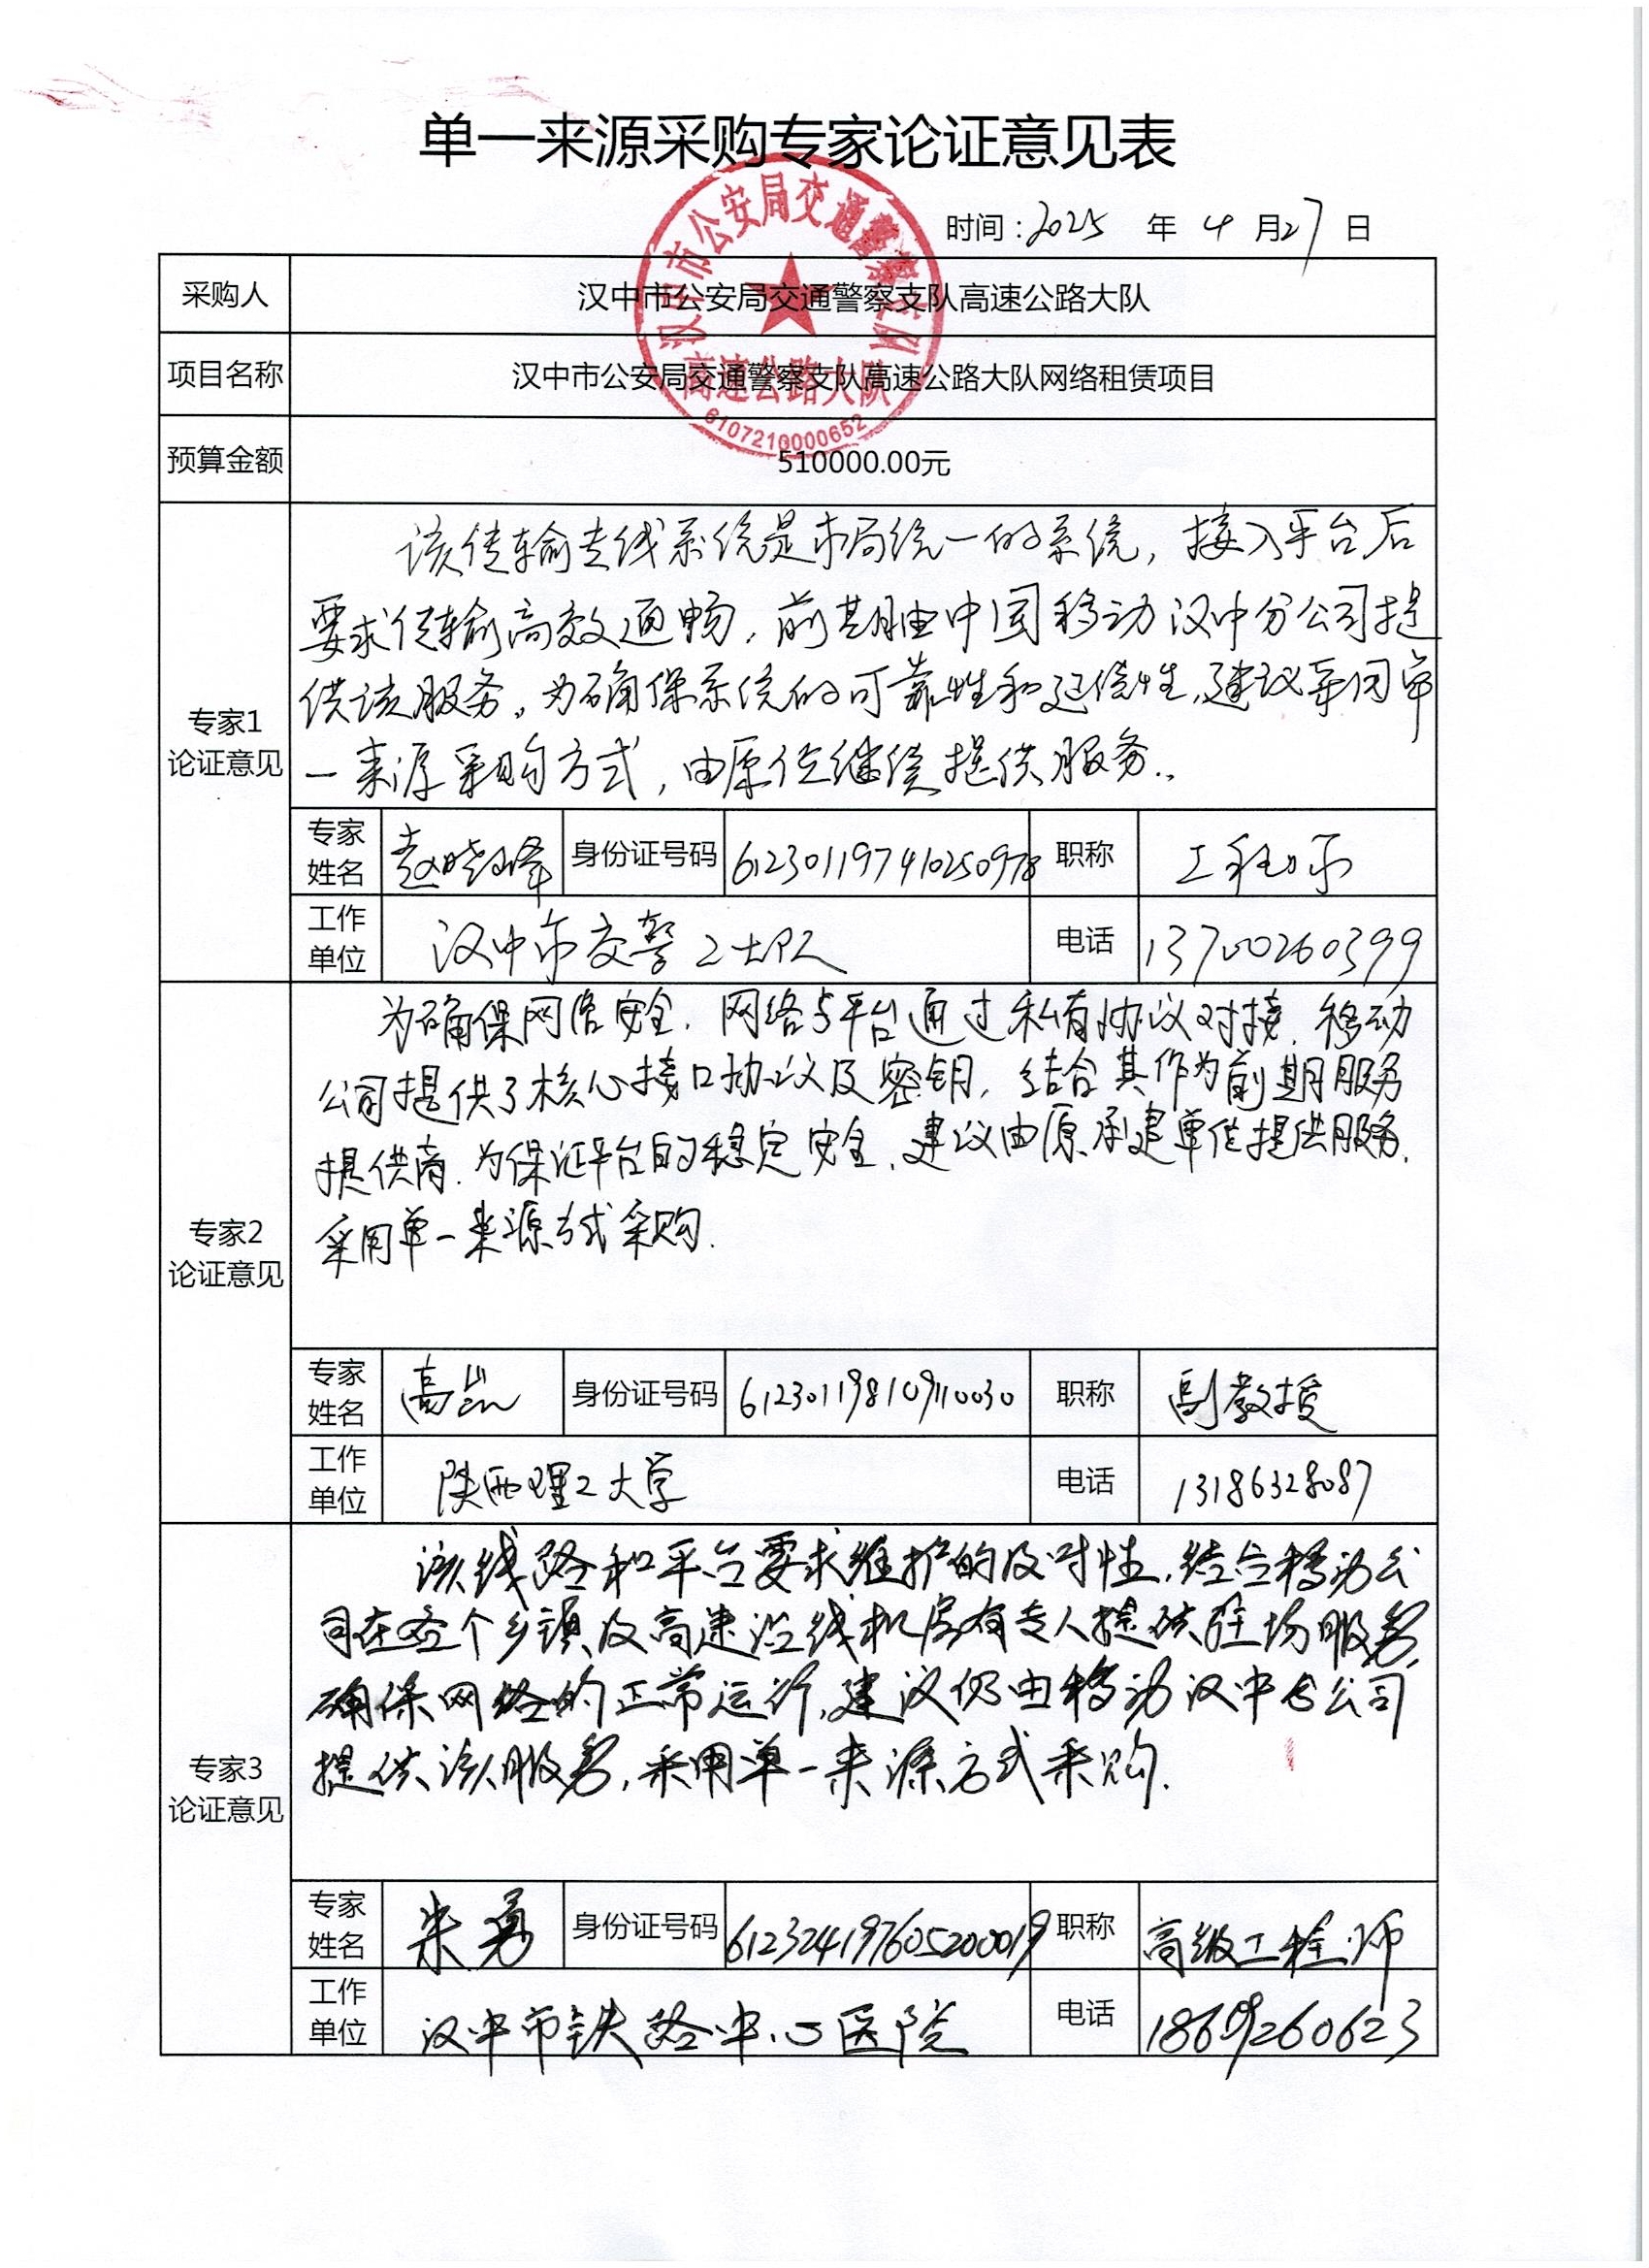 单一来源采购专家论证意见表
汉中市公安局交通警察支队
高速公路大队
6107210000652
时间：2025 年 4 月27 日
采购人 汉中市公安局交通警察支队高速公路大队
项目名称 汉中市公安局交通警察支队高速公路大队网络租赁项目
预算金额 510000.00元
专家1
论证意见
该传输专线系统是市局统一的系统，接入平台后
要求传输高效通畅，前期由中国移动汉中分公司提
供该服务。为确保系统的可靠性和延续性，建议采用单
一来源采购方式，由原单位继续提供服务。
专家姓名 赵晓峰 身份证号码 612301197410250978 职称 工程师
工作单位 汉中市交警二大队 电话 13700260399
专家2
论证意见
为确保网络安全，网络与平台通过私有协议对接，移动
公司提供了核心接口协议及密钥，结合其作为前期服务
提供商，为保证平台的稳定安全，建议由原承建单位提供服务，
采用单一来源方式采购.
专家姓名 高嵩 身份证号码 612301198109110030 职称 副教授
工作单位 陕西理工大学 电话 13186328087
专家3
论证意见
该线路和平台要求维护的及时性，结合移动公
司在各个乡镇及高速沿线机房有专人提供驻场服务，
确保网络的正常运行，建议仍由移动汉中分公司
提供该服务，采用单一来源方式采购.
专家姓名 朱勇 身份证号码 612324197605200019 职称 高级工程师
工作单位 汉中市铁路中心医院 电话 18609260623